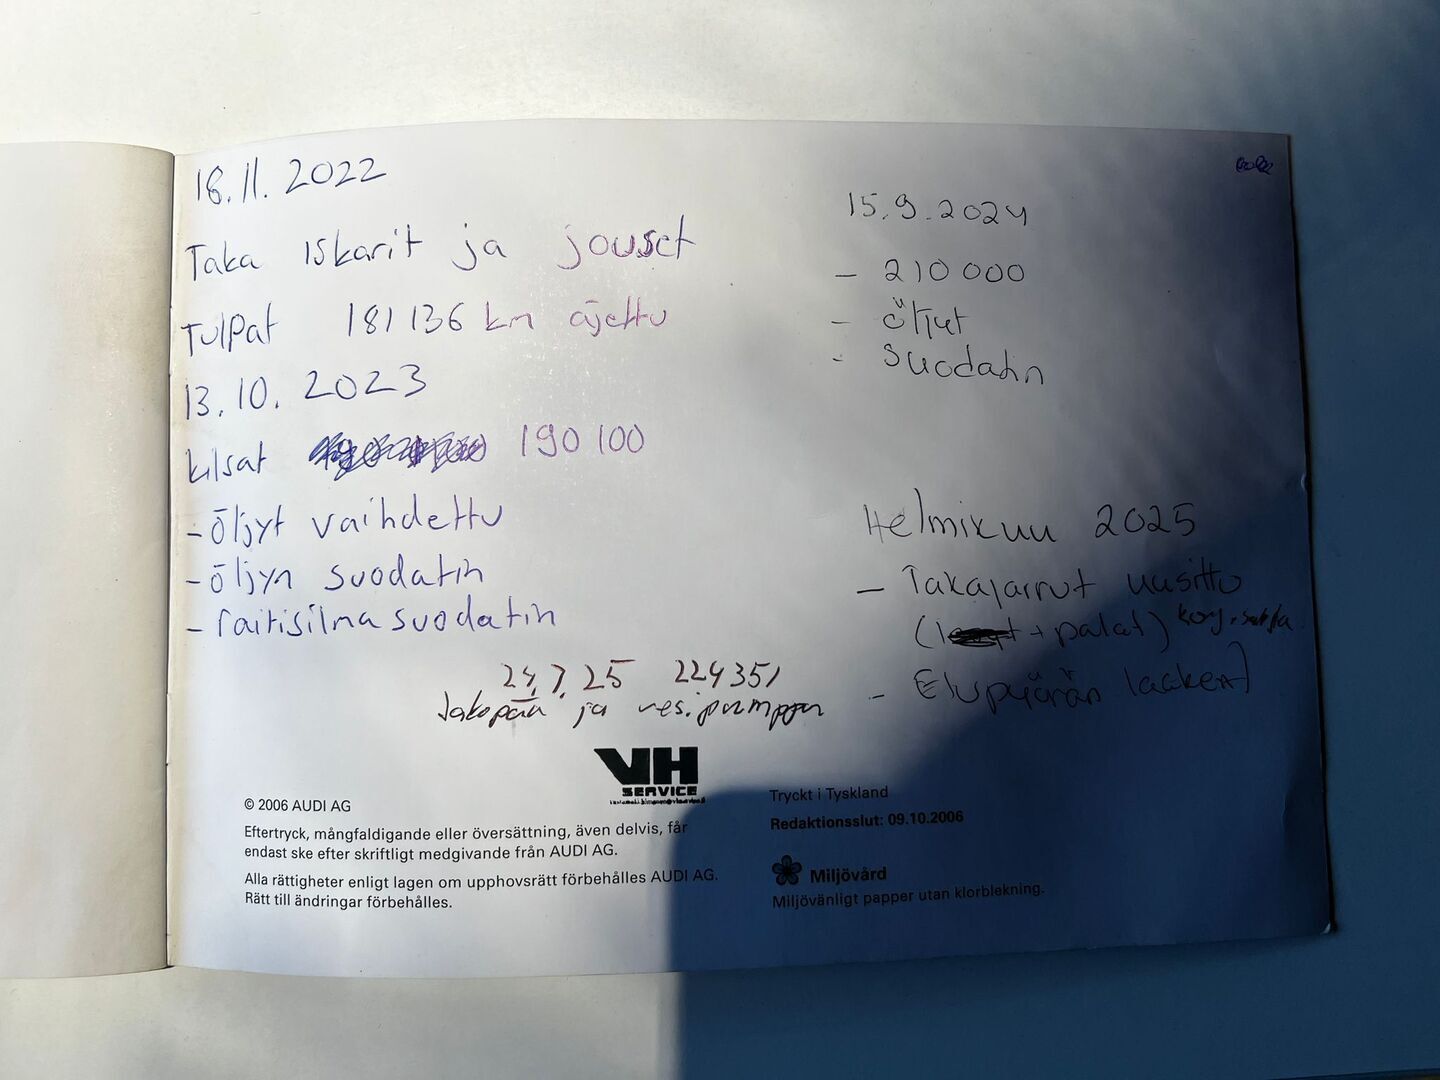 18.11.2022
Taka Iskarit ja jouset
Tulpat 181 136 km ajettu
13.10.2023
kilsat 190 100
- öljyt vaihdettu
- öljyn suodatin
- raitisilmasuodatin
15.9.2024
- 210 000
- öljyt
- suodatin
Helmikuu 2025
- Takajarrut uusittu
( + palat)
- Etupyörän
24.7.25 224351
Jakopään ja ves.pumppu
VH
SERVICE
© 2006 AUDI AG
Eftertryck, mångfaldigande eller översättning, även delvis, får
endast ske efter skriftligt medgivande från AUDI AG.
Alla rättigheter enligt lagen om upphovsrätt förbehålles AUDI AG.
Rätt till ändringar förbehålles.
Tryckt i Tyskland
Redaktionsslut: 09.10.2006
Miljövård
Miljövänligt papper utan klorblekning.